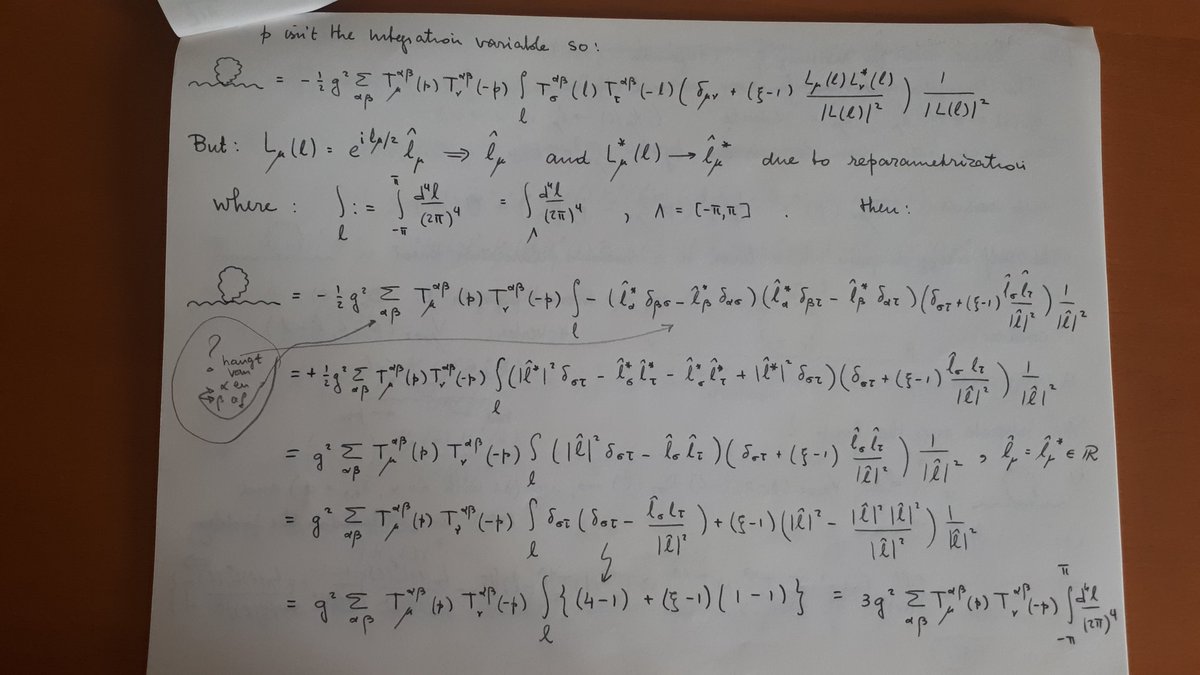 p isn't the integration variable so:
= -½ g² Σ_{αβ} T_μ^{αβ}(p) T_ν^{αβ}(-p) ∫_l T_σ^{αβ}(l) T_τ^{αβ}(-l) ( δ_{μν} + (ξ-1) L_μ(l) L_ν^*(l) / |L(l)|² ) 1 / |L(l)|²
But: L_μ(l) = e^{i l_μ/2} l̂_μ ⟹ l̂_μ and L_μ^*(l) → l̂_μ^* due to reparametrization
where: ∫_l := ∫_{-π}^{π} d⁴l/(2π)⁴ = ∫_Λ d⁴l/(2π)⁴ , Λ = [-π,π] . then:
= -½ g² Σ_{αβ} T_μ^{αβ}(p) T_ν^{αβ}(-p) ∫_l - (l̂_α^* δ_{βσ} - l̂_β^* δ_{ασ}) (l̂_α^* δ_{βτ} - l̂_β^* δ_{ατ}) (δ_{στ} + (ξ-1) l̂_σ l̂_τ / |l̂|²) 1/|l̂|²
? hangt van α en β af
= +½ g² Σ_{αβ} T_μ^{αβ}(p) T_ν^{αβ}(-p) ∫_l (|l̂^*|² δ_{στ} - l̂_σ^* l̂_τ^* - l̂_σ^* l̂_τ^* + |l̂^*|² δ_{στ}) (δ_{στ} + (ξ-1) l̂_σ l̂_τ / |l̂|²) 1/|l̂|²
= g² Σ_{αβ} T_μ^{αβ}(p) T_ν^{αβ}(-p) ∫_l (|l̂|² δ_{στ} - l̂_σ l̂_τ) (δ_{στ} + (ξ-1) l̂_σ l̂_τ / |l̂|²) 1/|l̂|² , l̂_μ = l̂_μ^* ∈ ℝ
= g² Σ_{αβ} T_μ^{αβ}(p) T_ν^{αβ}(-p) ∫_l δ_{στ} (δ_{στ} - l̂_σ l_τ / |l̂|²) + (ξ-1) (|l̂|² - |l̂|² |l̂|² / |l̂|²) 1/|l̂|²
= g² Σ_{αβ} T_μ^{αβ}(p) T_ν^{αβ}(-p) ∫_l {(4-1) + (ξ-1)(1-1)} = 3g² Σ_{αβ} T_μ^{αβ}(p) T_ν^{αβ}(-p) ∫_{-π}^{π} d⁴l/(2π)⁴